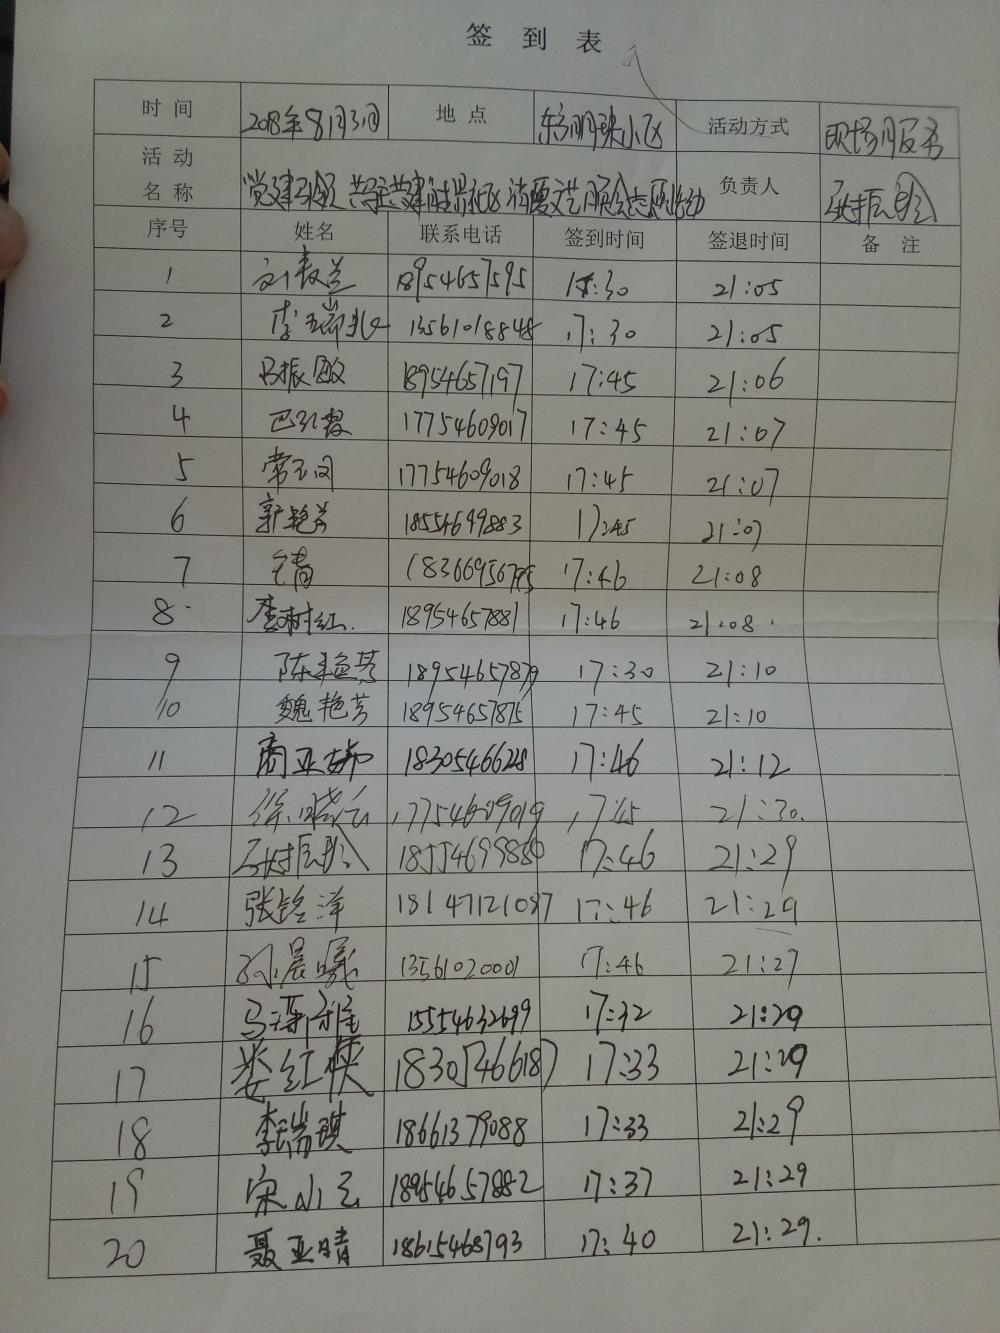 签到表
时间 2018年8月3日 地点 东方明珠小区 活动方式 现场服务
活动名称 党建引领 共享共建 社区消夏文艺晚会志愿活动 负责人
序号 姓名 联系电话 签到时间 签退时间 备注
1 18954657595 17:30 21:05
2 13561018848 17:30 21:05
3 18954657197 17:45 21:06
4 17754609017 17:45 21:07
5 17754609018 17:45 21:07
6 郭艳芳 18554699883 17:45 21:07
7 18366956795 17:46 21:08
8 李树红 18954657881 17:46 21:08
9 陈艳芬 18954657879 17:30 21:10
10 魏艳芳 18954657875 17:45 21:10
11 商亚茹 18305466248 17:46 21:12
12 徐晓云 17754609019 17:45 21:30
13 18554699880 17:46 21:29
14 张铭洋 18147121087 17:46 21:29
15 孙晨曦 13561020001 17:46 21:27
16 15554632699 17:32 21:29
17 姜红侠 18305466187 17:33 21:29
18 李瑞琪 18661379088 17:33 21:29
19 宋小云 18954657882 17:37 21:29
20 聂亚晴 18615468793 17:40 21:29